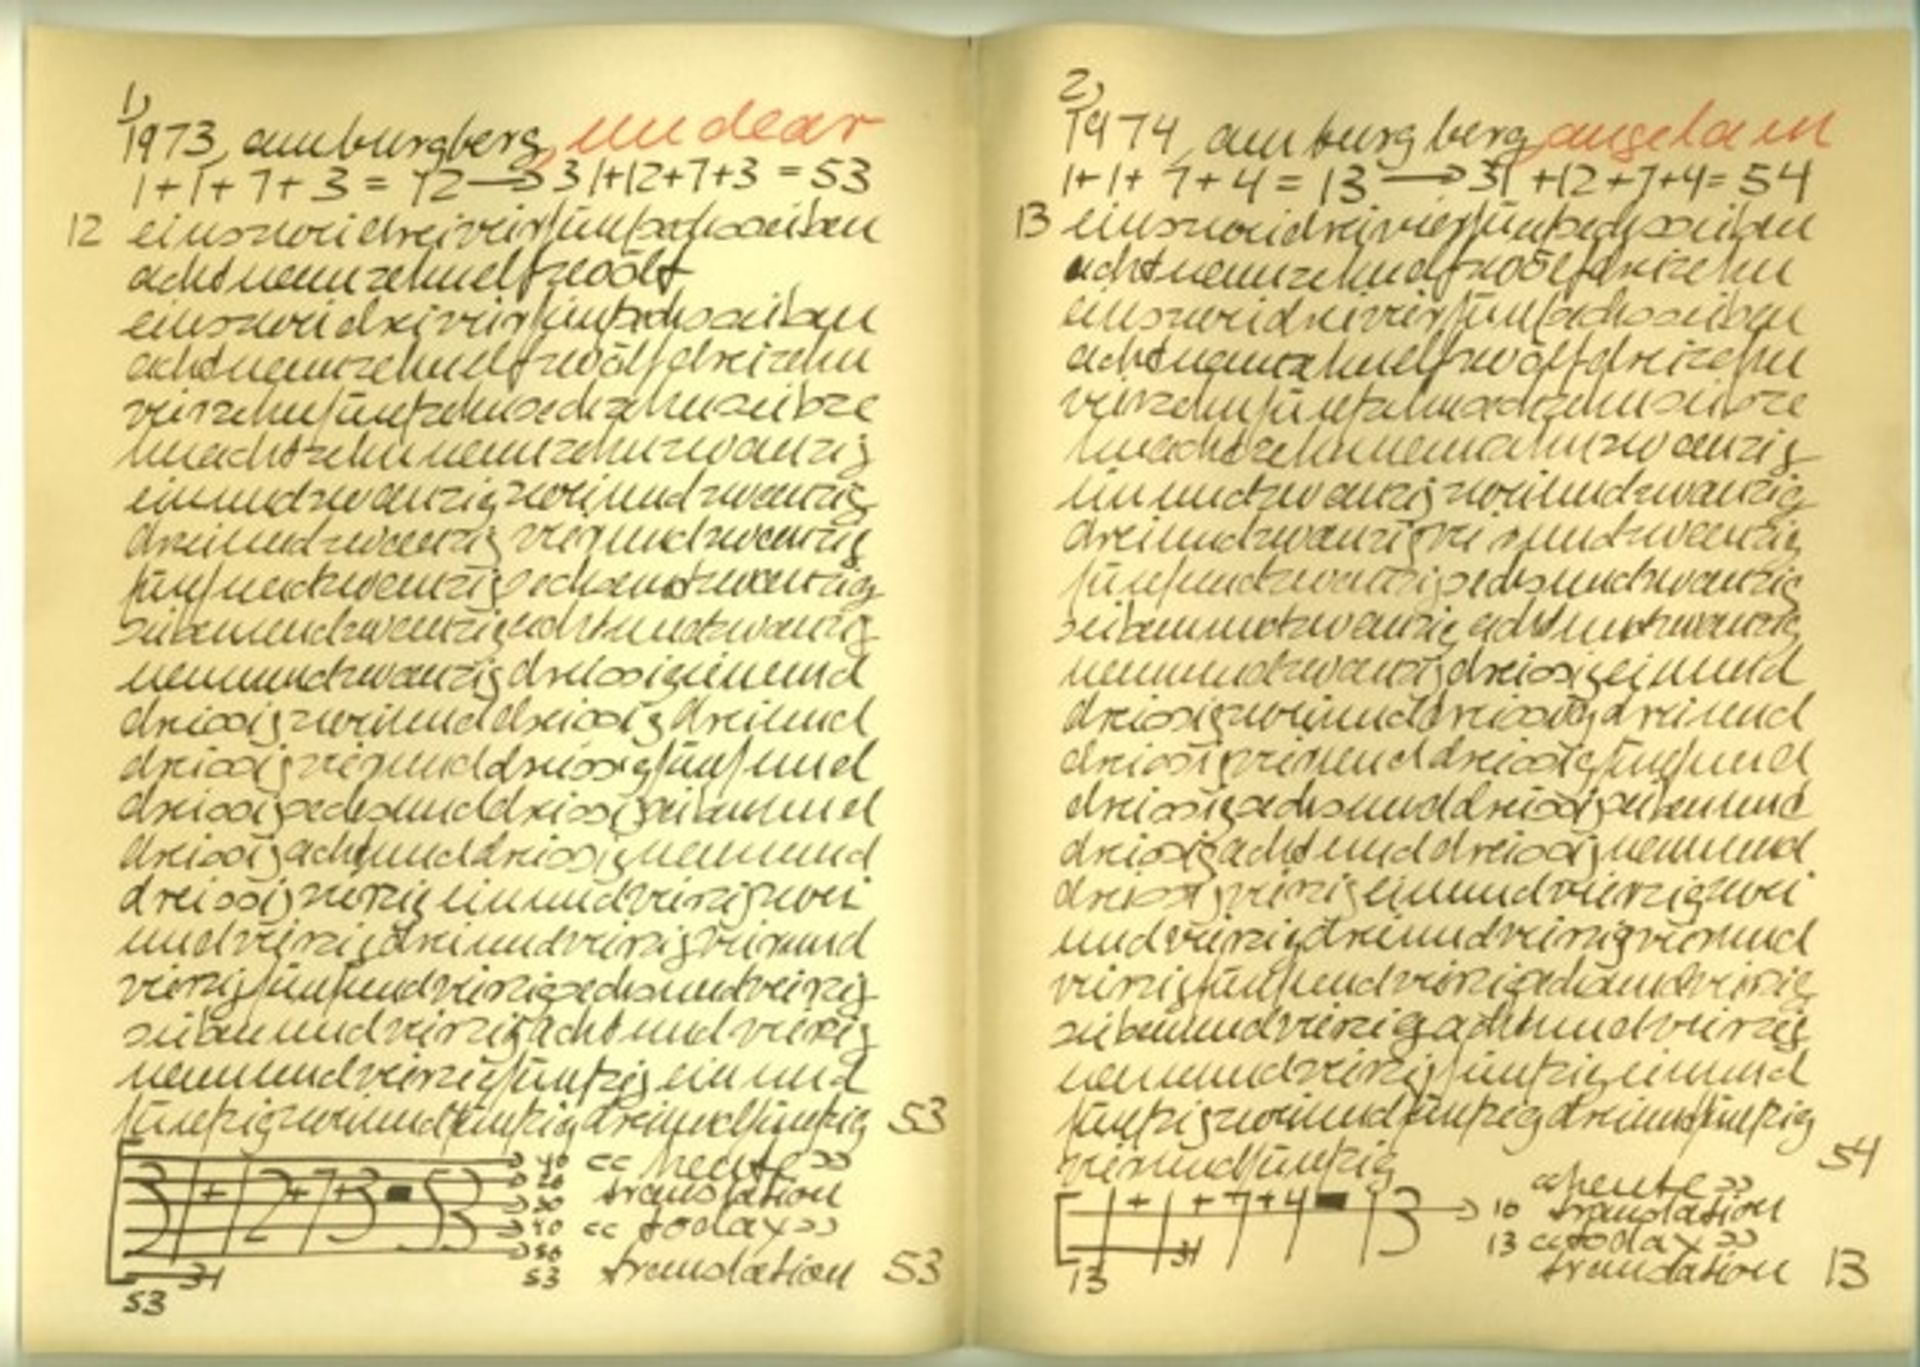 1)
1973, am burgberg, un dear
1+1+7+3 = 12 → 31+12+7+3 = 53
12 einszweidreiveirfünfsechsseiben
achtneunzehnelfzwölf
einszweidreiveirfünfsechsseiben
achtneunzehnelfzwölfdreizehn
veirzehnfünfzehnsechzehnseibze
hnachtzehnneunzehnzwanzig
einundzwanzigzweiundzwanzig
dreiundzwanzigveirundzwanzig
fünfundzwanzigsechsundzwanzig
seibenundzwanzigachtundzwanzig
neunundzwanzigdreissigeinund
dreissigzweiunddreissigdreiund
dreissigveirunddreissigfünfund
dreissigsechsunddreissigseibenund
dreissigachtunddreissigneunund
dreissigveirzigeinundveirzigzwei
undveirzigdreiundveirzigveirund
veirzigfünfundveirzigsechsundveirzig
seibenundveirzigachtundveirzig
neunundveirzigfünfzigeinund
fünfzigzweiundfünfzigdreiundfünfzig 53
31+12+7+3=53
10 << heute >>
20 translation
30
40 << today >>
50
53 translation 53
31
53
2)
1974, am burgberg, angela un
1+1+7+4 = 13 → 31+12+7+4 = 54
13 einszweidreivierfünfsechsseiben
achtneunzehnelfzwölfdreizehn
einszweidreiveirfünfsechsseiben
achtneunzehnelfzwölfdreizehn
veirzehnfünfzehnsechzehnseibze
hnachtzehnneunzehnzwanzig
einundzwanzigzweiundzwanzig
dreiundzwanzigveirundzwanzig
fünfundzwanzigsechsundzwanzig
seibenundzwanzigachtundzwanzig
neunundzwanzigdreissigeinund
dreissigzweiunddreissigdreiund
dreissigveirunddreissigfünfund
dreissigsechsunddreissigseibenund
dreissigachtunddreissigneunund
dreissigveirzigeinundvierzigzwei
undveirzigdreiundveirzigveirund
veirzigfünfundveirzigsechsundveirzig
seibenundvierzigachtundveirzig
neunundveirzigfünfzigeinund
fünfzigzweiundfünfzigdreiundfünfzig
vierundfünfzig 54
1+1+7+4=13
<< heute >>
10 translation
13 << today >>
translation 13
31
13